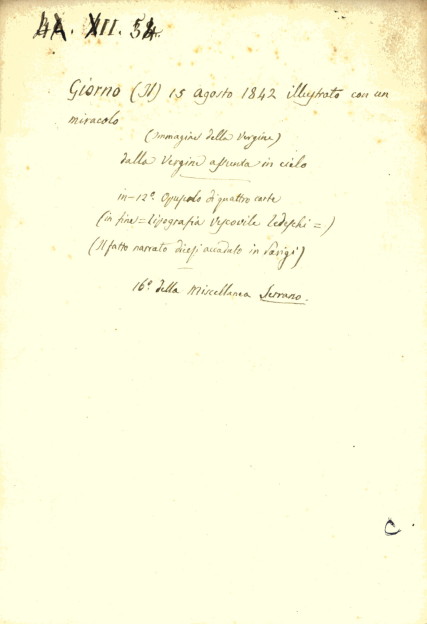 4A. XII. 54.
Giorno (Il) 15 agosto 1842 illustrato con un
miracolo
(immagine della Vergine)
dalla Vergine assunta in cielo
in-12º. Opuscolo di quattro carte
(in fine = Tipografia Vescovile Tedeschi =)
(Il fatto narrato dicesi accaduto in Parigi)
16º della Miscellanea Serrano.
C